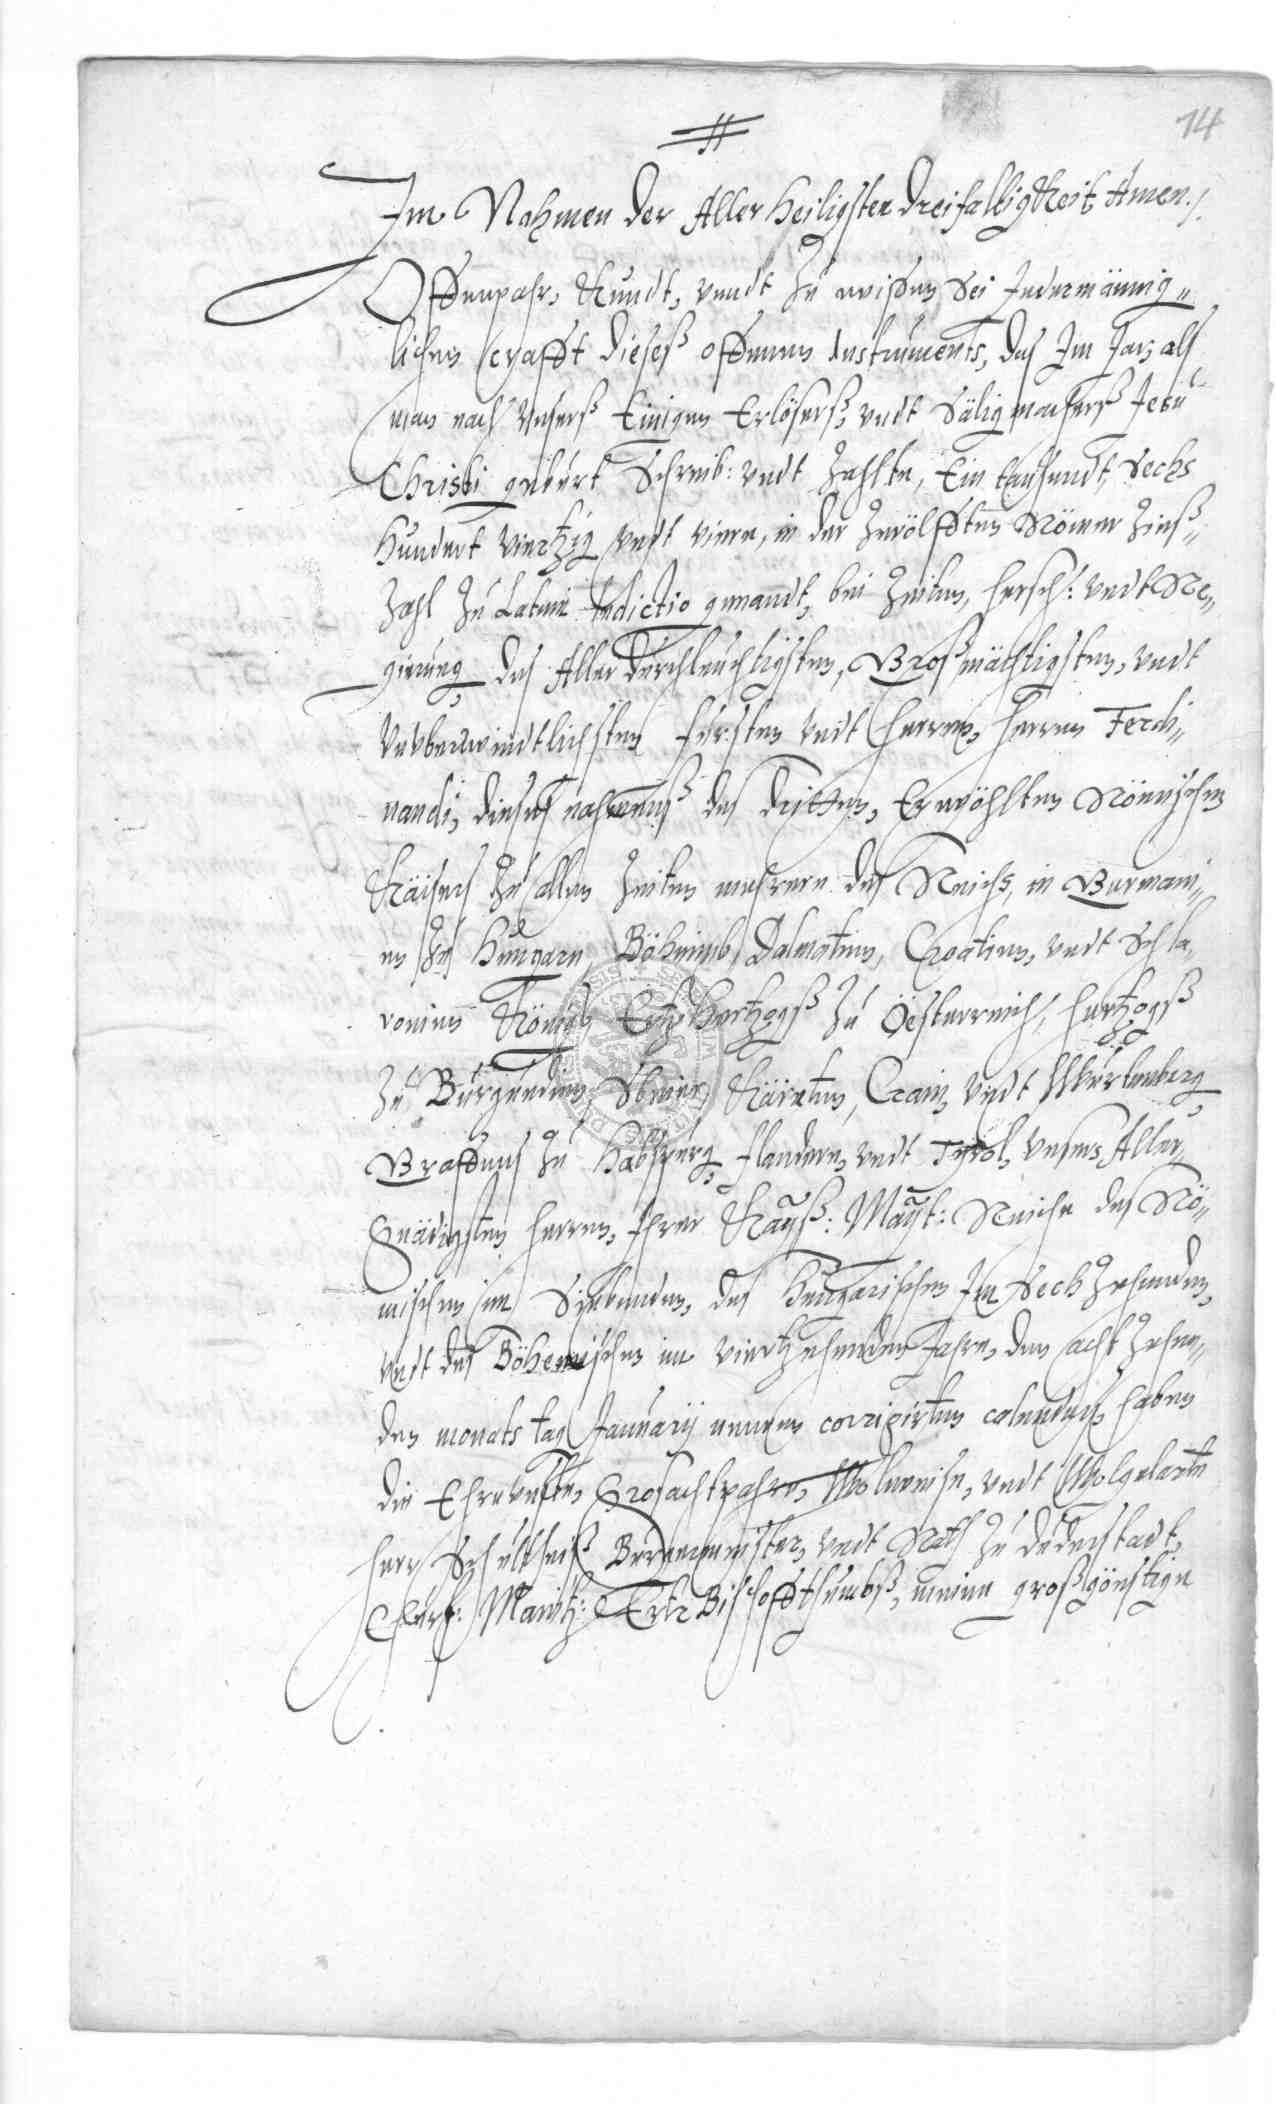 14
Im Nahmen der Aller Heiligsten dreifaltigkeit Amen./.
Offenpahr, Kundt, vndt zu wißen Sei Jedermännig„
lichen Crafft dieses offenen Instruments, das Im Jar als
man nach Vnsers Einigen Erlösers, vndt Säligmachers Jesu
Christi geburt Schreib: vndt Zahlte, Ein tausendt, Sechs
Hundert Viertzig vndt Viere, in der Zwölfften Römer Zinß„
Zahl zu Latein Indictio genandt, bei Zeiten, Hersch: vndt Re„
gierung des Aller durchleuchtigsten, Großmächtigsten, vndt
Vnvberwindtlichsten Fürsten vndt Herren, Herren Ferdi„
nandi, dieses nahmens des dritten, Erwöhlten Römischen
Käisers zu allen Zeiten mehrern des Reichs, in Germani„
en zu Hungarn, Böheimb, Dalmatien, Croatien, vndt Scla„
vonien König, Ertz Hertzogß zu Oesterreich, Hertzogß
zu Burgundien, Steier, Kärnten, Crain, vndt Würtenberg,
Graffens zu Habspurg, Flandern, vndt Tyrol, Vnsers Aller„
Gnädigsten Herren, Ihrer Kayß: Mayt: Reiche des Rö„
mischen im Siebenden, des Hungarischen Im Sechzehenden,
vndt des Böhemischen im Viertzehenden Jahre, den acht Zehen„
den monats tag Januarij neuwen corrigirten calenders, haben
die Ehrnveste, Grosachtpahre, Wolweise, vndt Wolgelarte
Herr Schultheiß Bürgermeister, vndt Rath zu Duderstadt,
Churf: Maintz: Ertz Bischoffthumbß, meine großgönstige